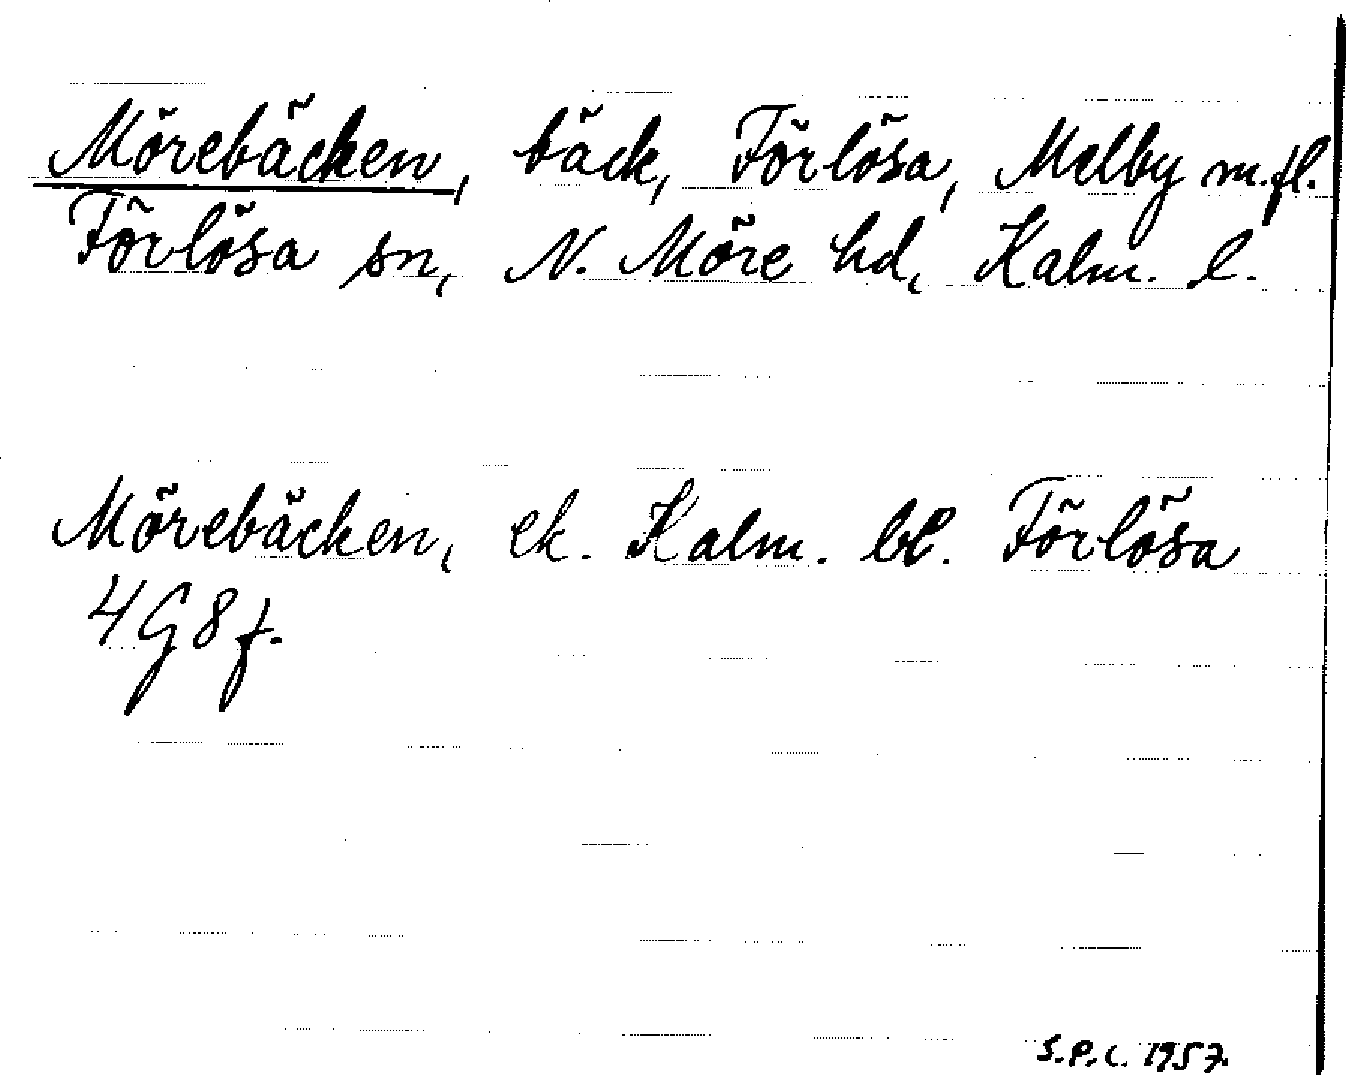 Mörebäcken, bäck, Förlösa, Melby m.fl.
Förlösa sn, N. Möre hd, Kalm. l.
Mörebäcken, ek. Kalm. bl. Förlösa
4G8f.
S.P.C. 1957.